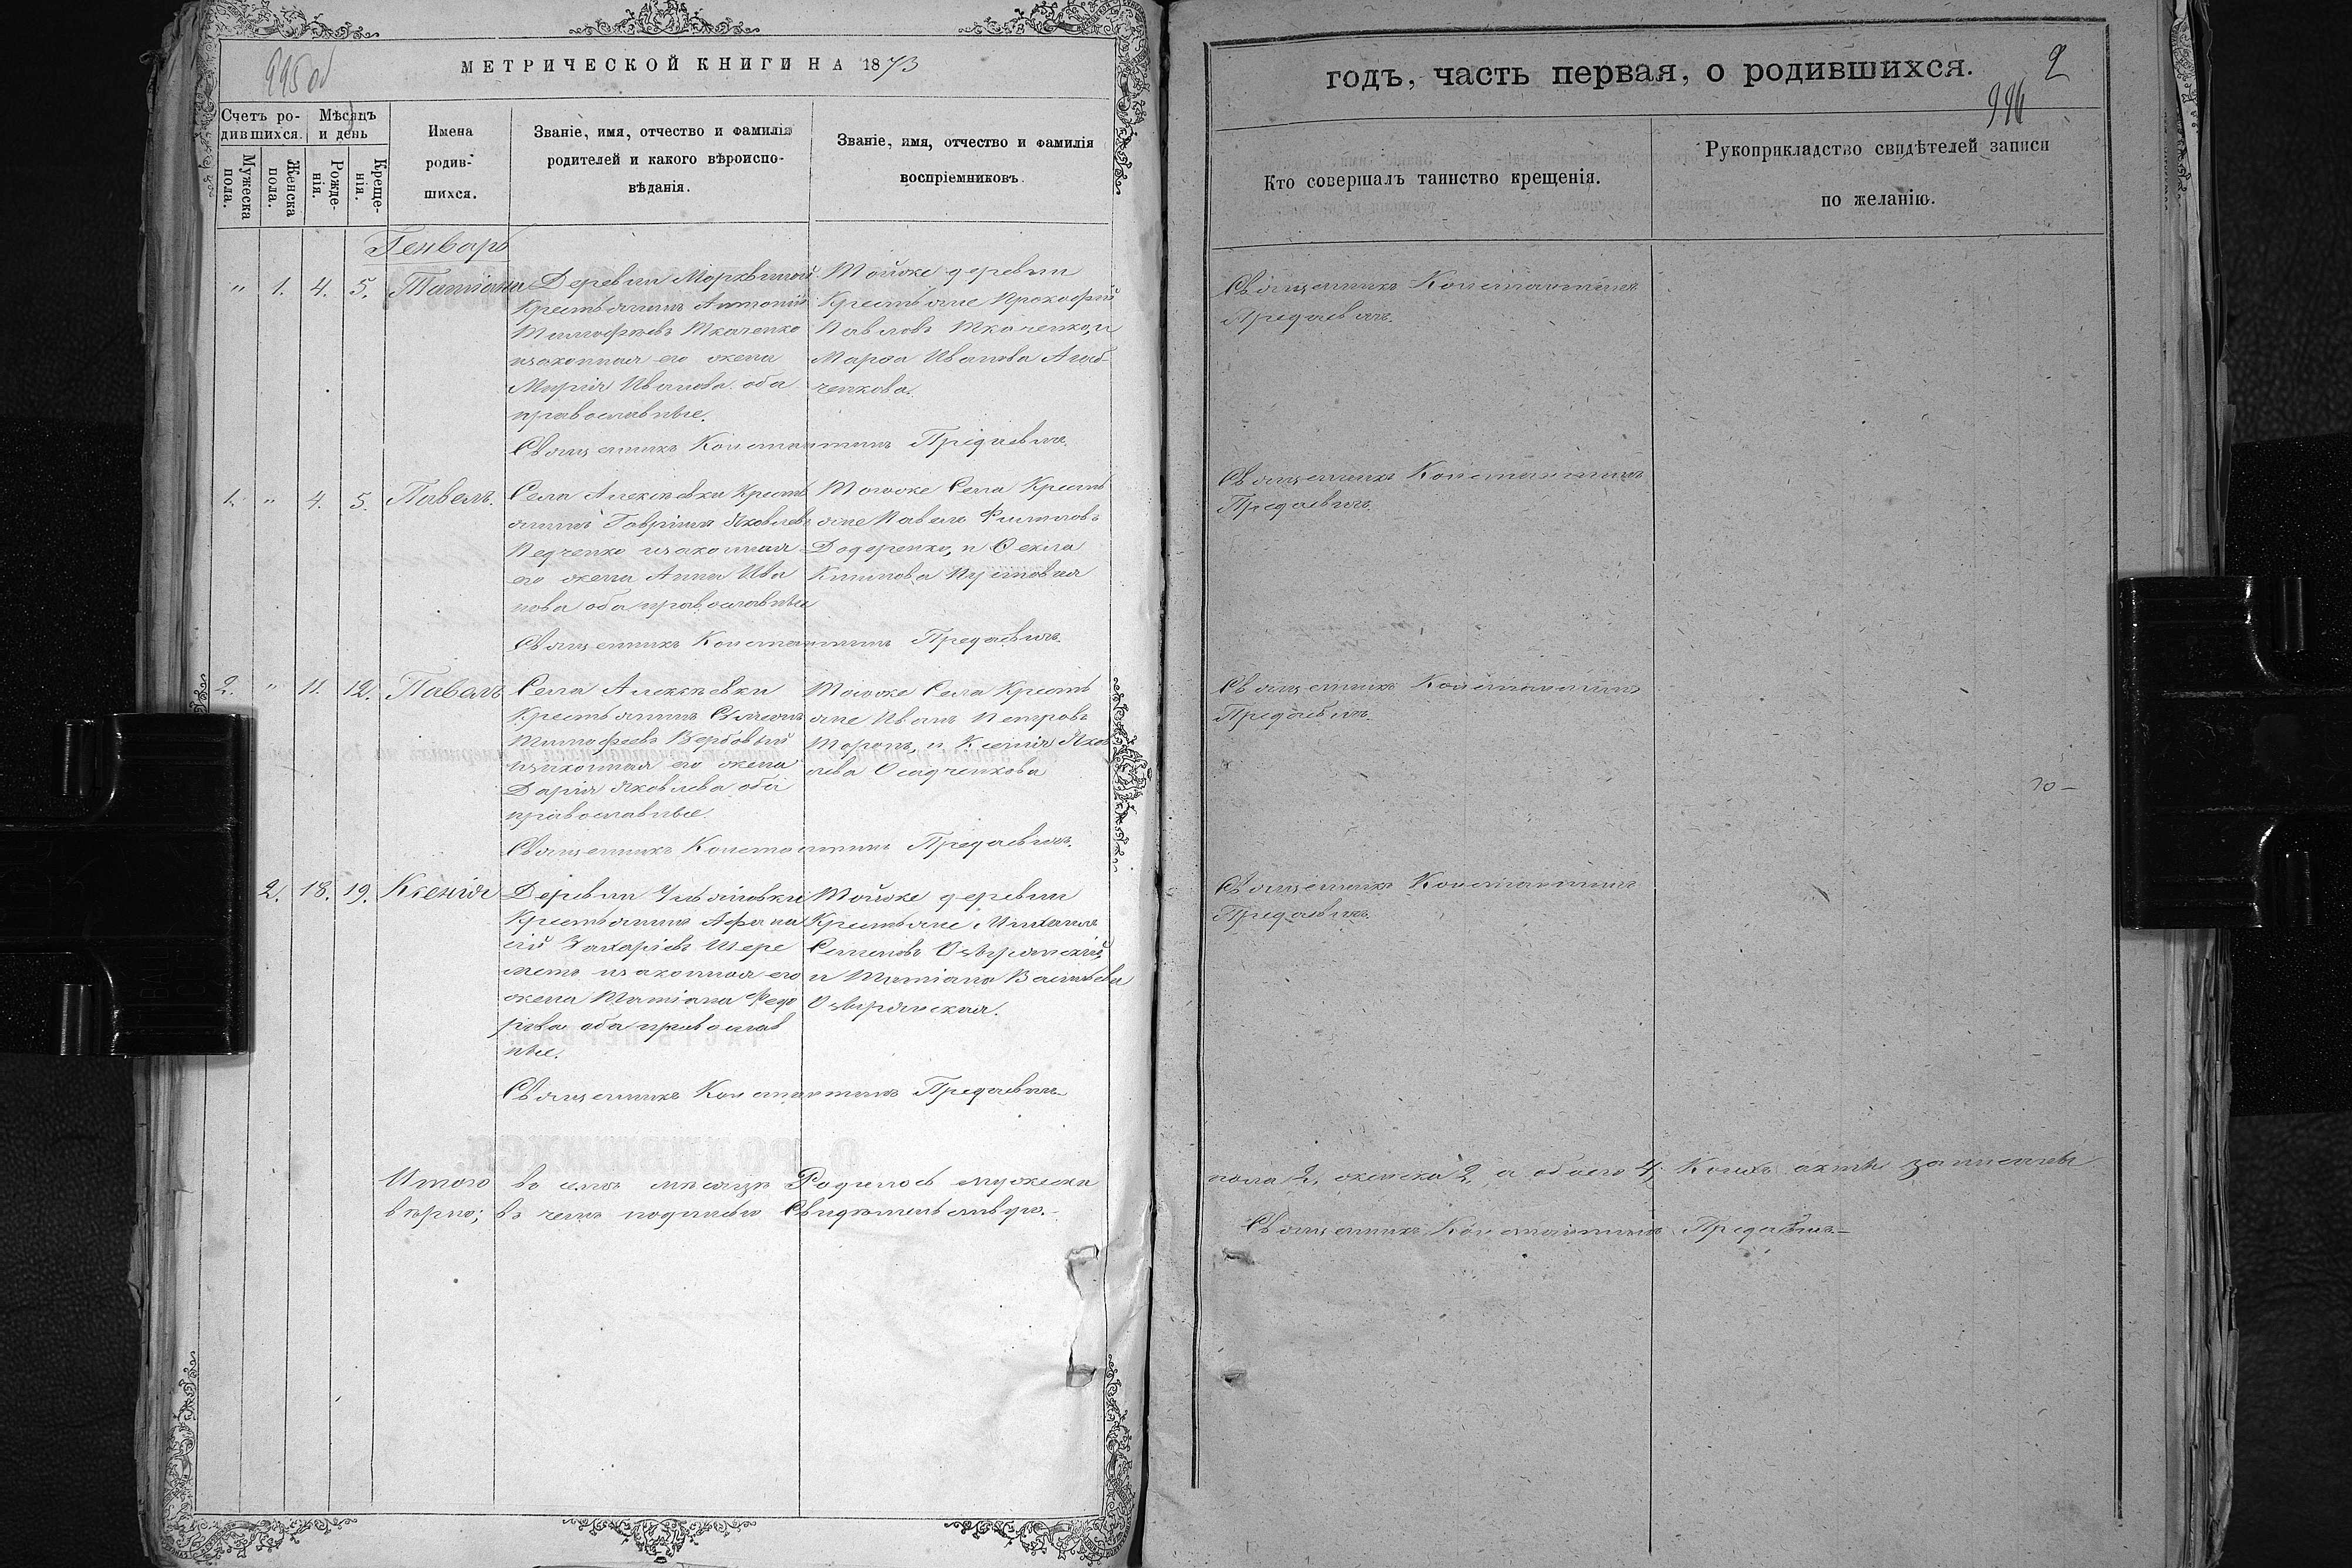 995 об
МЕТРИЧЕСКОЙ КНИГИ НА 1873
годъ, часть первая, о родившихся.
2
996
Счетъ ро-
дившихся.
Мѣсяцъ
и день
Мужеска
пола.
Женска
пола.
Рожде-
нія.
Креще-
нія.
Имена
родив-
шихся.
Званіе, имя, отчество и фамилія
родителей и какого вѣроиспо-
вѣданія.
Званіе, имя, отчество и фамилія
воспріемниковъ.
Кто совершалъ таинство крещенія.
Рукоприкладство свидѣтелей записи
по желанію.
Генварь
" 1. 4. 5. Татіана
Деревни
Крестьянинъ Антоній
Ткаченко
изаконная его жена
Марія Иванова оба
православные.
Тойже деревни
Крестьяне Прокофій
Павловъ Ткаченко, и
Марѳа Иванова
ченкова.
Священникъ Константинъ
Предаевичъ.
Священникъ Константинъ Предаевичъ.
1. " 4. 5. Павелъ.
Села Алексѣевки Кресть
янинъ Гавріилъ Яковлевъ
Педченко изаконная
его жена Анна Ива
нова оба православные
Тогоже Села Кресть
яне Павелъ Филиповъ
Додеренко, и Ѳекла
Климова
Священникъ Константинъ
Предаевичъ.
Священникъ Константинъ Предаевичъ.
2. " 11. 12. Павелъ
Села Алексѣевки
Крестьянинъ Сѵмеонъ
Тимофеевъ Вербовый
изаконная его жена
Дарія Яковлева оба
православные.
Тогоже Села Кресть
яне Иванъ Петровъ
Моронъ, и Ксенія Яков
лева Осадченкова
Священникъ Константинъ
Предаевичъ.
Священникъ Константинъ Предаевичъ.
2. 18. 19. Ксенія
Деревни Ульяновки
Крестьянинъ Афана
сій Захаріевъ Шере
метъ изаконная его
жена Татіана Федо
рова оба православ
ные.
Тойже деревни
Крестьяне Михаилъ
Семеновъ
и Татіана Васильева
Священникъ Константинъ
Предаевичъ.
Священникъ Константинъ Предаевичъ.
Итого въ семъ мѣсяцѣ Родилось мужеска
пола 2, женска 2, а обоего 4; Коихъ акты записаны
вѣрно; въ чемъ подписью Свидѣтельствую.
Священникъ Константинъ Предаевичъ.